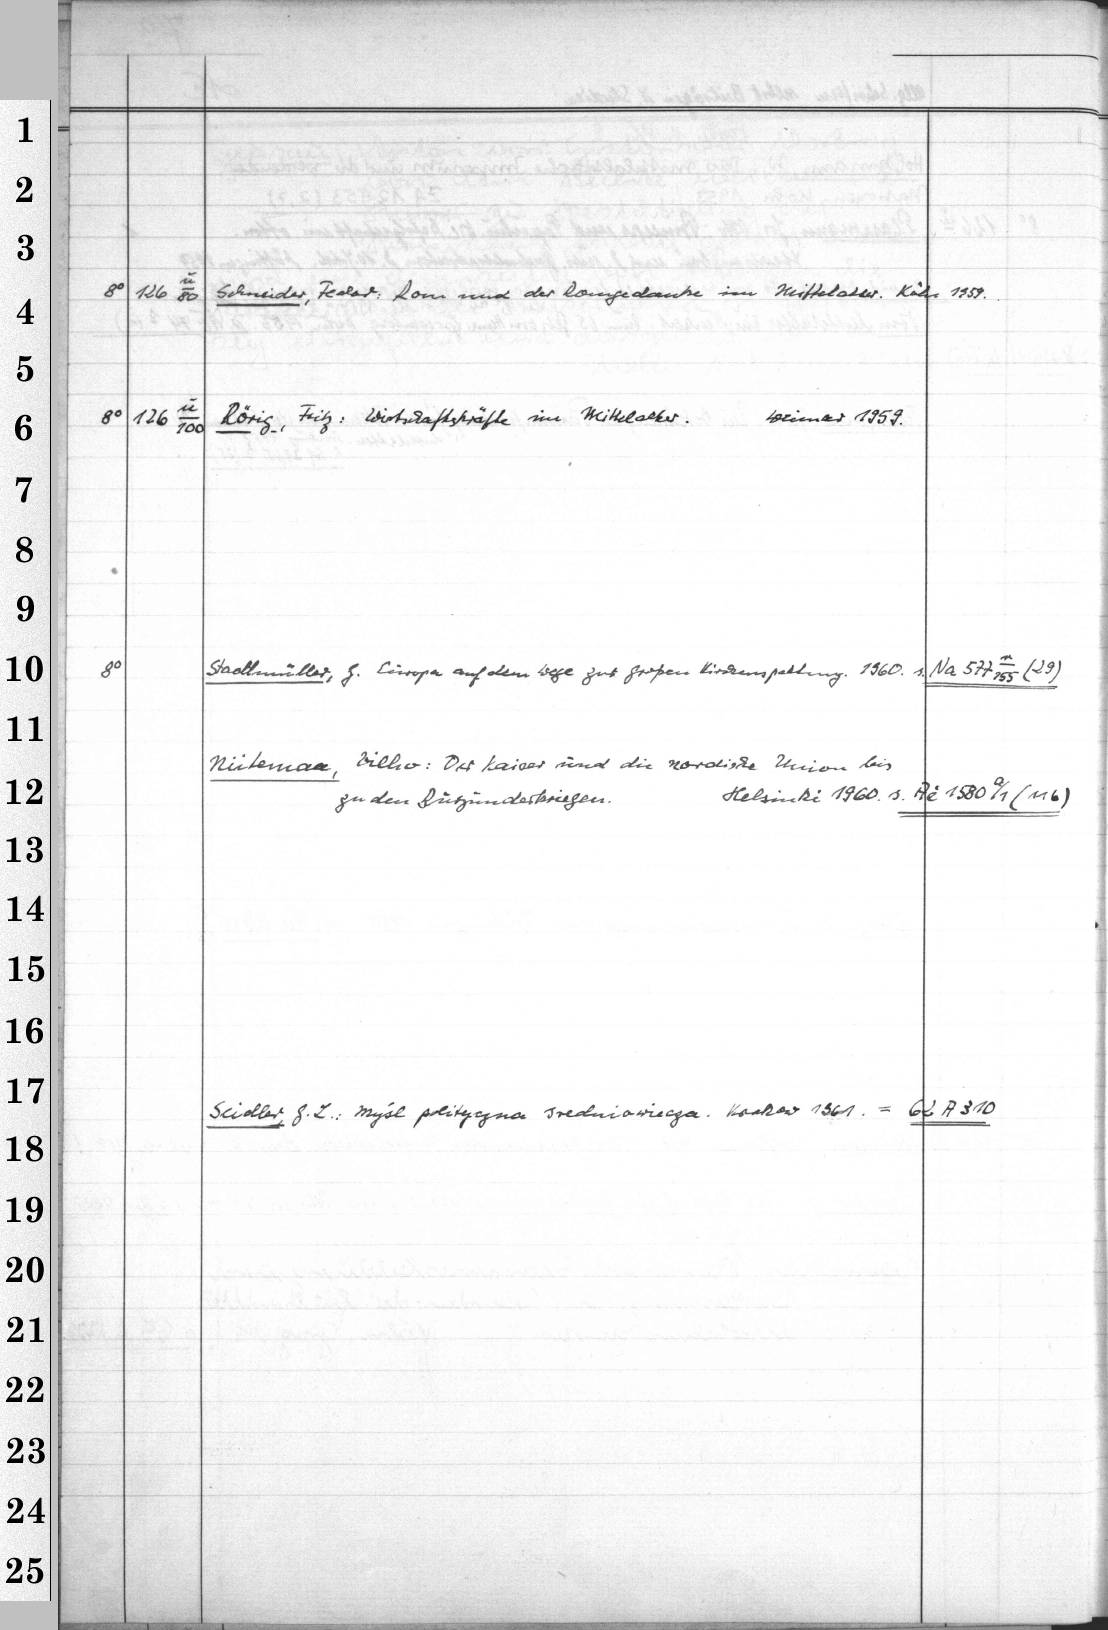 1
2
3
8° 126 ü/80 Schneider, Fedor: Rom und der Romgedanke im Mittelalter. Köln 1959.
4
5
8° 126 ü/100 Rörig, Fritz: Wirtschaftskräfte im Mittelalter. Weimar 1959.
6
7
8
9
8° Stadtmüller, G. Europa auf dem Wege zur großen Kirchenspaltung. 1960. s. Na 577 n/155 (29)
10
11
Niitemaa, Vilho: Der Kaiser und die nordische Union bis
12
zu den Burgunderkriegen. Helsinki 1960. s. Aé 1580 a/1 (116)
13
14
15
16
17
Seidler, G. L.: Myśl polityczna średniowiecza. Krakow 1961. = 62 A 310
18
19
20
21
22
23
24
25